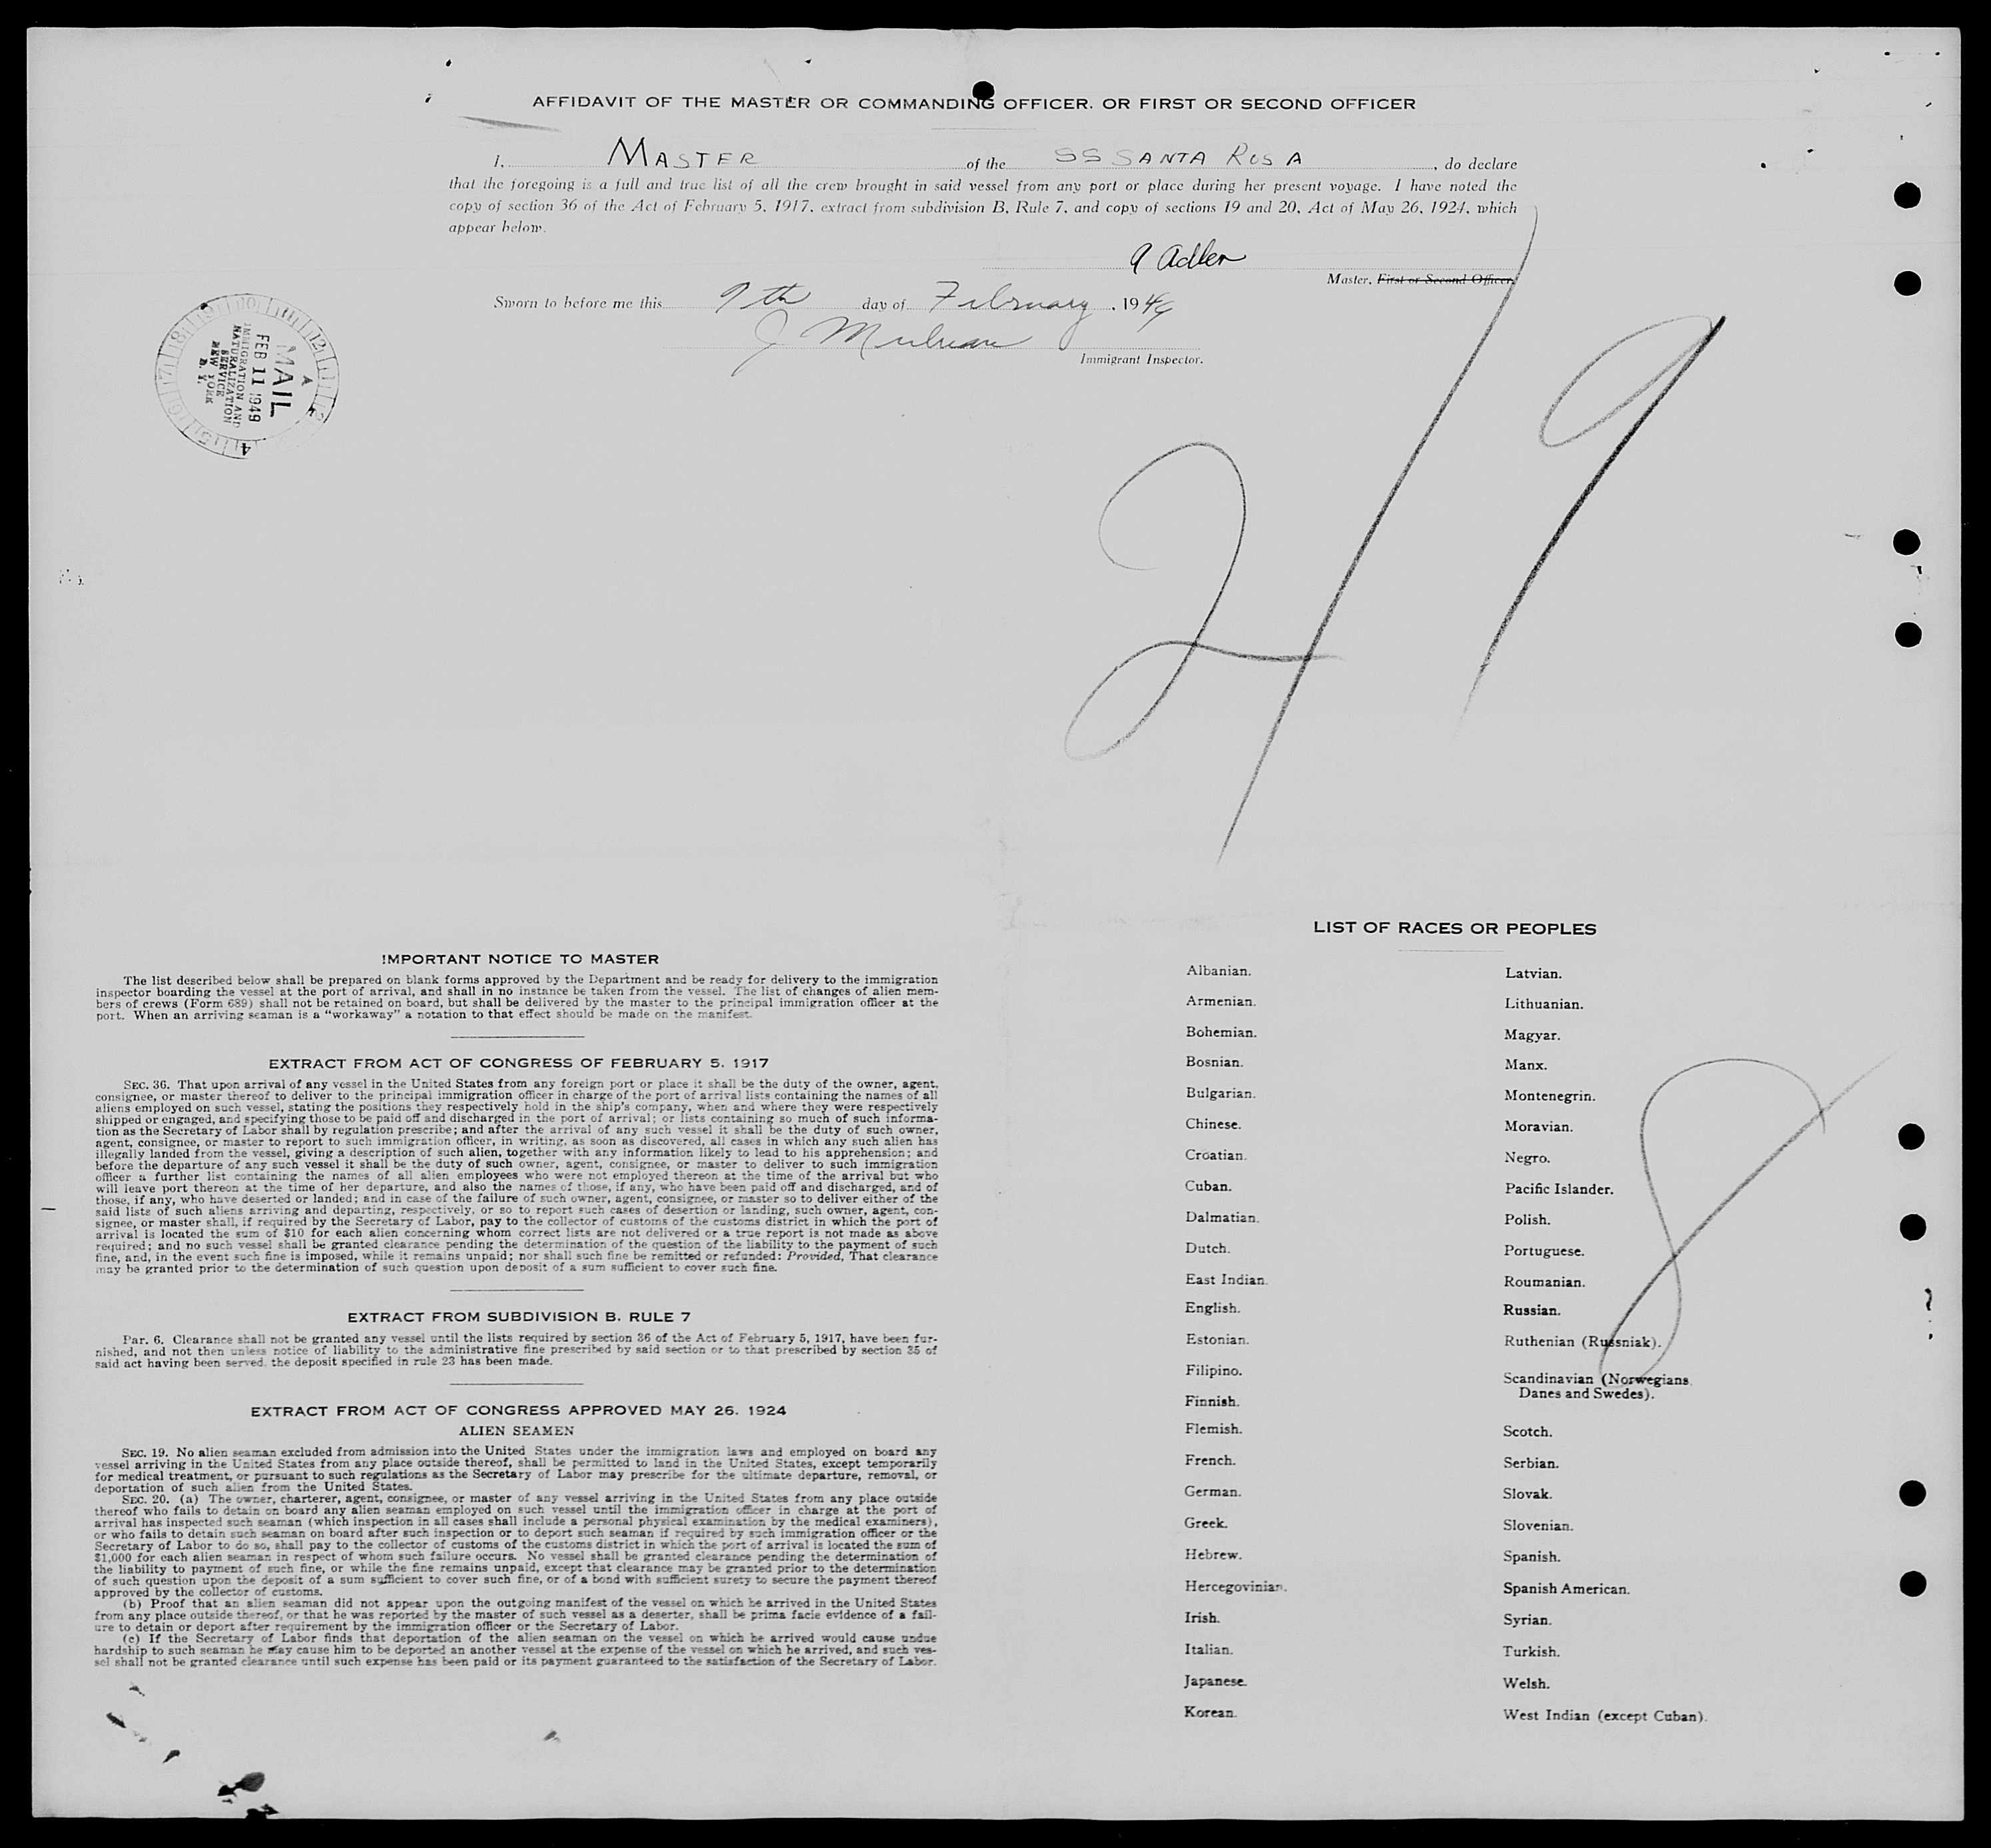 AFFIDAVIT OF THE MASTER OR COMMANDING OFFICER. OR FIRST OR SECOND OFFICER
I, MASTER of the SS SANTA ROSA, do declare
that the foregoing is a full and true list of all the crew brought in said vessel from any port or place during her present voyage. I have noted the
copy of section 36 of the Act of February 5, 1917, extract from subdivision B, Rule 7, and copy of sections 19 and 20, Act of May 26, 1924, which
appear below.
Adler
Master, First or Second Officer.
Sworn to before me this 9th day of February, 1949
Immigrant Inspector.
MAIL
FEB 11 1949
IMMIGRATION AND
NATURALIZATION
SERVICE
NEW YORK
N. Y.
249
IMPORTANT NOTICE TO MASTER
The list described below shall be prepared on blank forms approved by the Department and be ready for delivery to the immigration
inspector boarding the vessel at the port of arrival, and shall in no instance be taken from the vessel. The list of changes of alien mem-
bers of crews (Form 689) shall not be retained on board, but shall be delivered by the master to the principal immigration officer at the
port. When an arriving seaman is a “workaway” a notation to that effect should be made on the manifest.
EXTRACT FROM ACT OF CONGRESS OF FEBRUARY 5, 1917
SEC. 36. That upon arrival of any vessel in the United States from any foreign port or place it shall be the duty of the owner, agent,
consignee, or master thereof to deliver to the principal immigration officer in charge of the port of arrival lists containing the names of all
aliens employed on such vessel, stating the positions they respectively hold in the ship's company, when and where they were respectively
shipped or engaged, and specifying those to be paid off and discharged in the port of arrival; or lists containing so much of such informa-
tion as the Secretary of Labor shall by regulation prescribe; and after the arrival of any such vessel it shall be the duty of such owner,
agent, consignee, or master to report to such immigration officer, in writing, as soon as discovered, all cases in which any such alien has
illegally landed from the vessel, giving a description of such alien, together with any information likely to lead to his apprehension; and
before the departure of any such vessel it shall be the duty of such owner, agent, consignee, or master to deliver to such immigration
officer a further list containing the names of all alien employees who were not employed thereon at the time of the arrival but who
will leave port thereon at the time of her departure, and also the names of those, if any, who have been paid off and discharged, and of
those, if any, who have deserted or landed; and in case of the failure of such owner, agent, consignee, or master so to deliver either of the
said lists of such aliens arriving and departing, respectively, or so to report such cases of desertion or landing, such owner, agent, con-
signee, or master shall, if required by the Secretary of Labor, pay to the collector of customs of the customs district in which the port of
arrival is located the sum of $10 for each alien concerning whom correct lists are not delivered or a true report is not made as above
required; and no such vessel shall be granted clearance pending the determination of the question of the liability to the payment of such
fine, and, in the event such fine is imposed, while it remains unpaid; nor shall such fine be remitted or refunded: Provided, That clearance
may be granted prior to the determination of such question upon deposit of a sum sufficient to cover such fine.
EXTRACT FROM SUBDIVISION B. RULE 7
Par. 6. Clearance shall not be granted any vessel until the lists required by section 36 of the Act of February 5, 1917, have been fur-
nished, and not then unless notice of liability to the administrative fine prescribed by said section or to that prescribed by section 35 of
said act having been served, the deposit specified in rule 23 has been made.
EXTRACT FROM ACT OF CONGRESS APPROVED MAY 26, 1924
ALIEN SEAMEN
SEC. 19. No alien seaman excluded from admission into the United States under the immigration laws and employed on board any
vessel arriving in the United States from any place outside thereof, shall be permitted to land in the United States, except temporarily
for medical treatment, or pursuant to such regulations as the Secretary of Labor may prescribe for the ultimate departure, removal, or
deportation of such alien from the United States.
SEC. 20. (a) The owner, charterer, agent, consignee, or master of any vessel arriving in the United States from any place outside
thereof who fails to detain on board any alien seaman employed on such vessel until the immigration officer in charge at the port of
arrival has inspected such seaman (which inspection in all cases shall include a personal physical examination by the medical examiners),
or who fails to detain such seaman on board after such inspection or to deport such seaman if required by such immigration officer or the
Secretary of Labor to do so, shall pay to the collector of customs of the customs district in which the port of arrival is located the sum of
$1,000 for each alien seaman in respect of whom such failure occurs. No vessel shall be granted clearance pending the determination of
the liability to payment of such fine, or while the fine remains unpaid, except that clearance may be granted prior to the determination
of such question upon the deposit of a sum sufficient to cover such fine, or of a bond with sufficient surety to secure the payment thereof
approved by the collector of customs.
(b) Proof that an alien seaman did not appear upon the outgoing manifest of the vessel on which he arrived in the United States
from any place outside thereof, or that he was reported by the master of such vessel as a deserter, shall be prima facie evidence of a fail-
ure to detain or deport after requirement by the immigration officer or the Secretary of Labor.
(c) If the Secretary of Labor finds that deportation of the alien seaman on the vessel on which he arrived would cause undue
hardship to such seaman he may cause him to be deported an another vessel at the expense of the vessel on which he arrived, and such ves-
sel shall not be granted clearance until such expense has been paid or its payment guaranteed to the satisfaction of the Secretary of Labor.
LIST OF RACES OR PEOPLES
Albanian.
Armenian.
Bohemian.
Bosnian.
Bulgarian.
Chinese.
Croatian.
Cuban.
Dalmatian.
Dutch.
East Indian.
English.
Estonian.
Filipino.
Finnish.
Flemish.
French.
German.
Greek.
Hebrew.
Hercegovinian.
Irish.
Italian.
Japanese.
Korean.
Latvian.
Lithuanian.
Magyar.
Manx.
Montenegrin.
Moravian.
Negro.
Pacific Islander.
Polish.
Portuguese.
Roumanian.
Russian.
Ruthenian (Russniak).
Scandinavian (Norwegians,
Danes and Swedes).
Scotch.
Serbian.
Slovak.
Slovenian.
Spanish.
Spanish American.
Syrian.
Turkish.
Welsh.
West Indian (except Cuban).
8